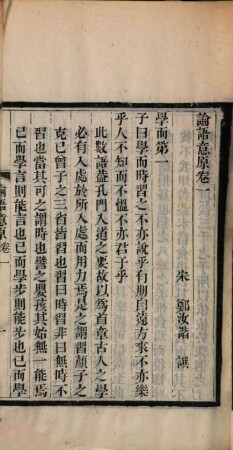 論語意原卷一
宋 鄭汝諧 譔
學而第一
子曰學而時習之不亦說乎有朋自遠方來不亦樂
乎人不知而不慍不亦君子乎
此數語蓋孔門入道之要故以爲首章古人之學
必有入處於所入處而用力焉是之謂習顏子之
克己曾子之三省皆習也習曰時習非曰無時不
習也當其可之謂時也譬之嬰孩其始無一能焉
已而學言則能言也已而學步則能步也已而學
論語意原卷一
一